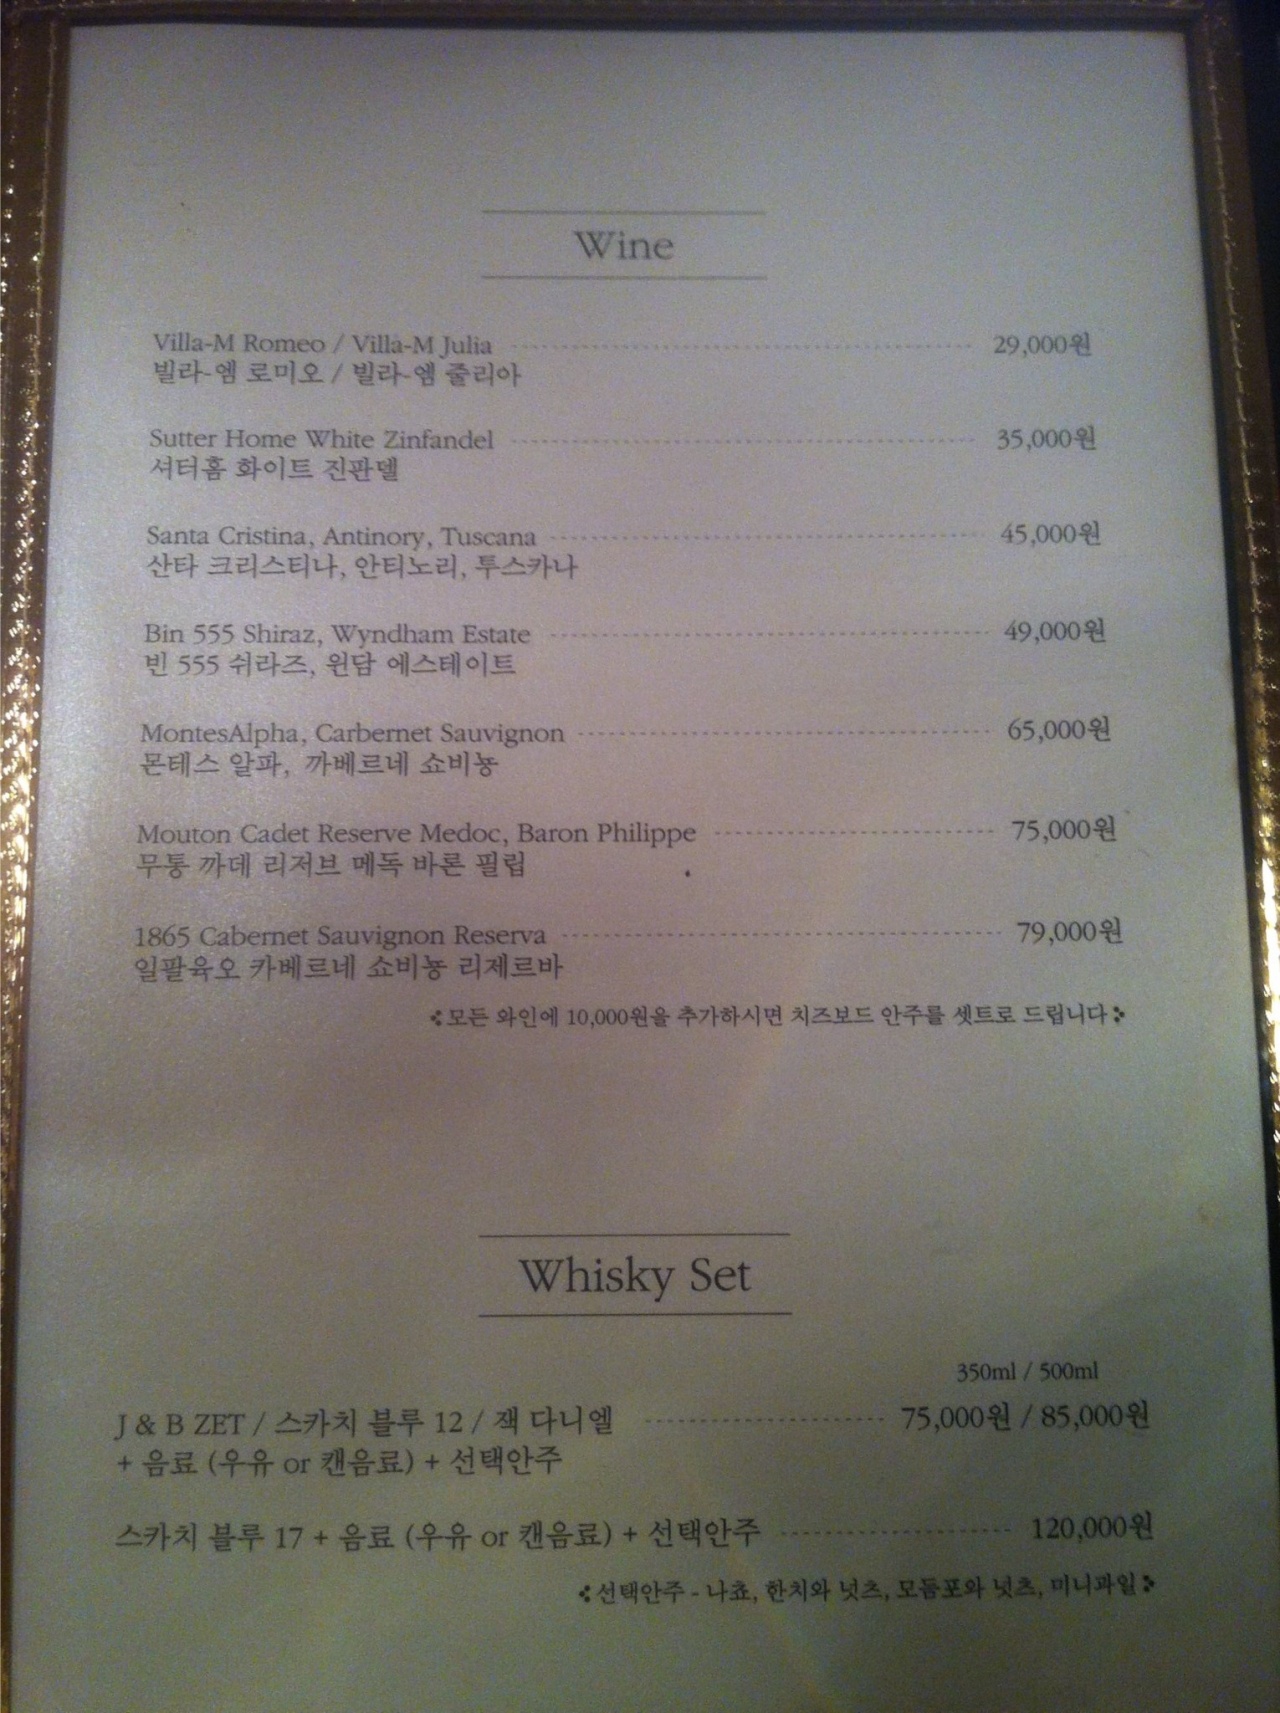 Wine
Villa-M Romeo / Villa-M Julia 29,000원
빌라-엠 로미오 / 빌라-엠 줄리아
Sutter Home White Zinfandel 35,000원
셔터홈 화이트 진판델
Santa Cristina, Antinory, Tuscana 45,000원
산타 크리스티나, 안티노리, 투스카나
Bin 555 Shiraz, Wyndham Estate 49,000원
빈 555 쉬라즈, 윈담 에스테이트
MontesAlpha, Carbernet Sauvignon 65,000원
몬테스 알파, 까베르네 쇼비뇽
Mouton Cadet Reserve Medoc, Baron Philippe 75,000원
무통 까데 리저브 메독 바론 필립
1865 Cabernet Sauvignon Reserva 79,000원
일팔육오 카베르네 쇼비뇽 리제르바
모든 와인에 10,000원을 추가하시면 치즈보드 안주를 셋트로 드립니다
Whisky Set
350ml / 500ml
J & B ZET / 스카치 블루 12 / 잭 다니엘 75,000원 / 85,000원
+ 음료 (우유 or 캔음료) + 선택안주
스카치 블루 17 + 음료 (우유 or 캔음료) + 선택안주 120,000원
선택안주 - 나쵸, 한치와 넛츠, 모듬포와 넛츠, 미니과일